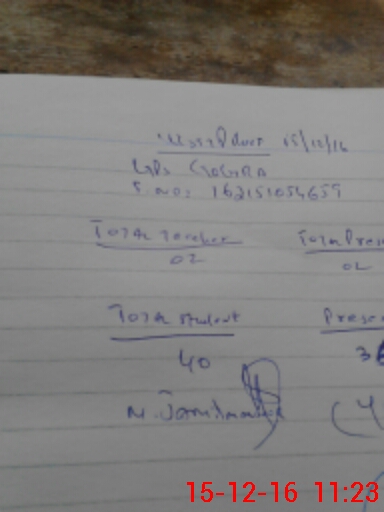 15/12/16
GPS GOGRA
S.NO: 162151054657
Total Teacher Total Prese
02 02
Total student Prese
40 36
N.
15-12-16 11:23